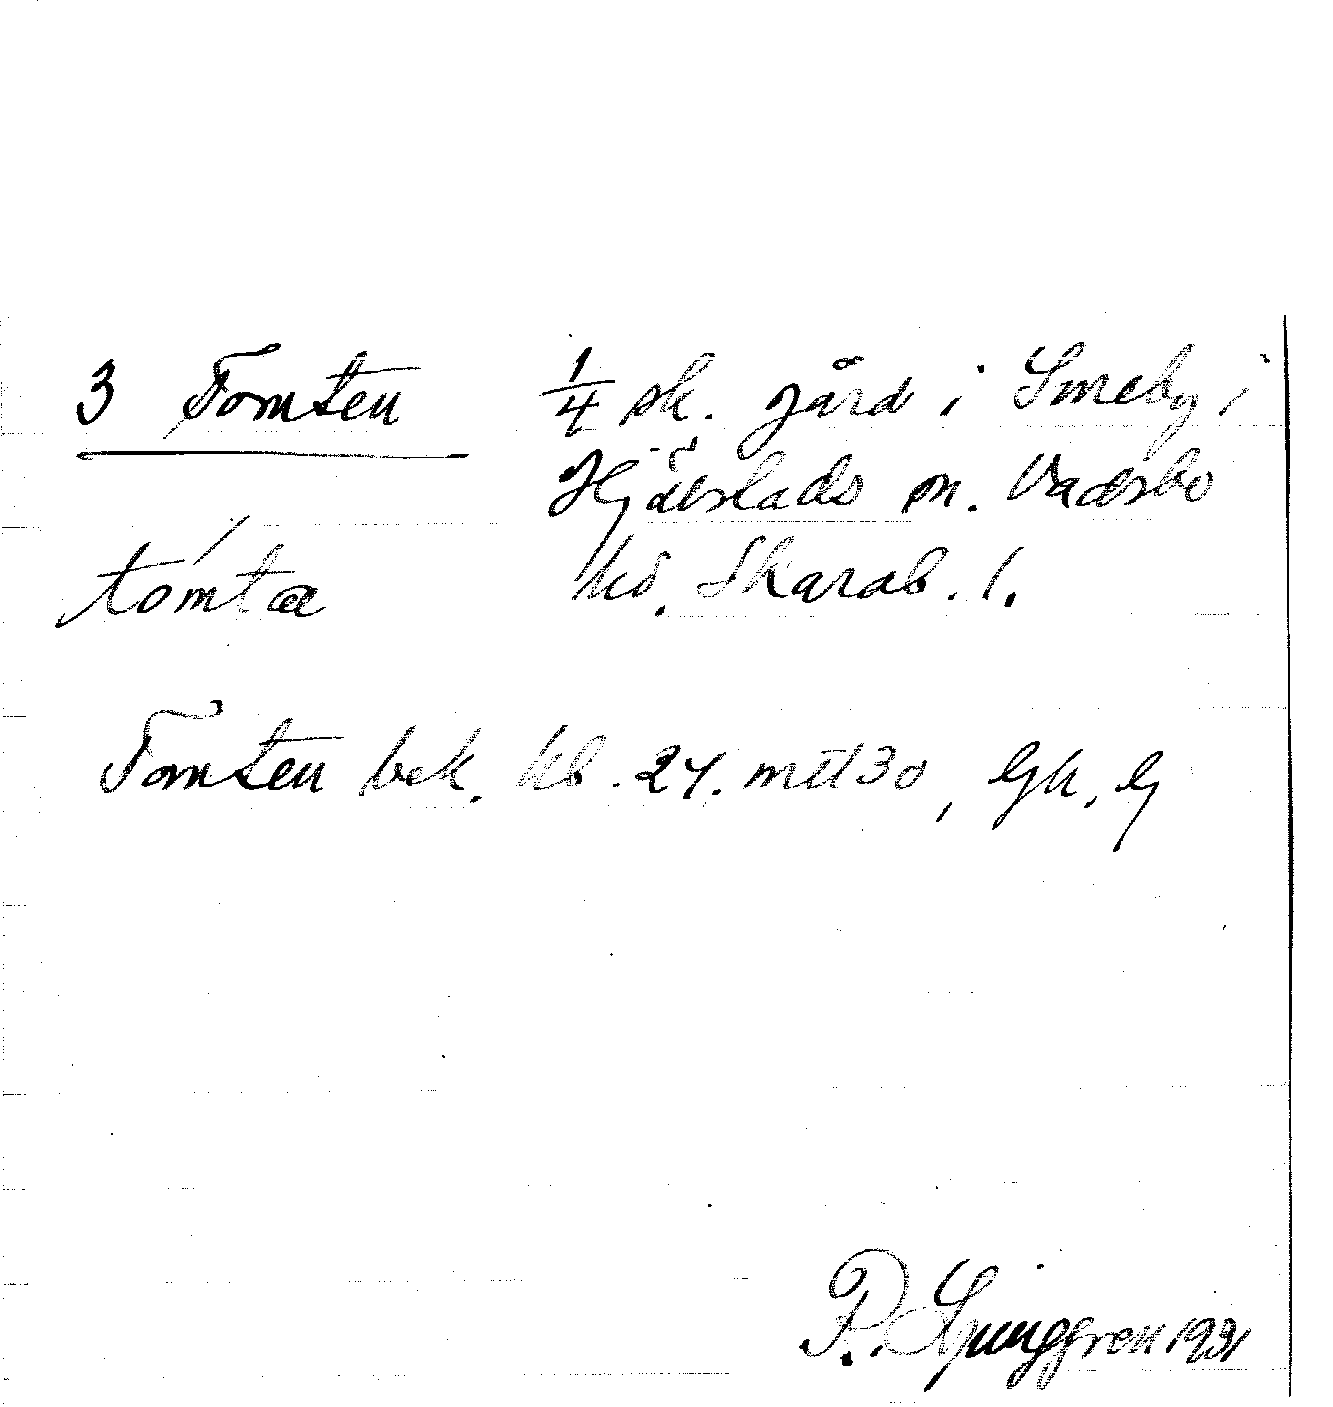 3 Tomten 1/4 sk. gård i Smeby i
Hjälstads sn. Vadsbo
tómta hd. Skarab. l.
Tomten bek. kb. 24. mtl 30, Gk, G
R. Ljunggren 1931